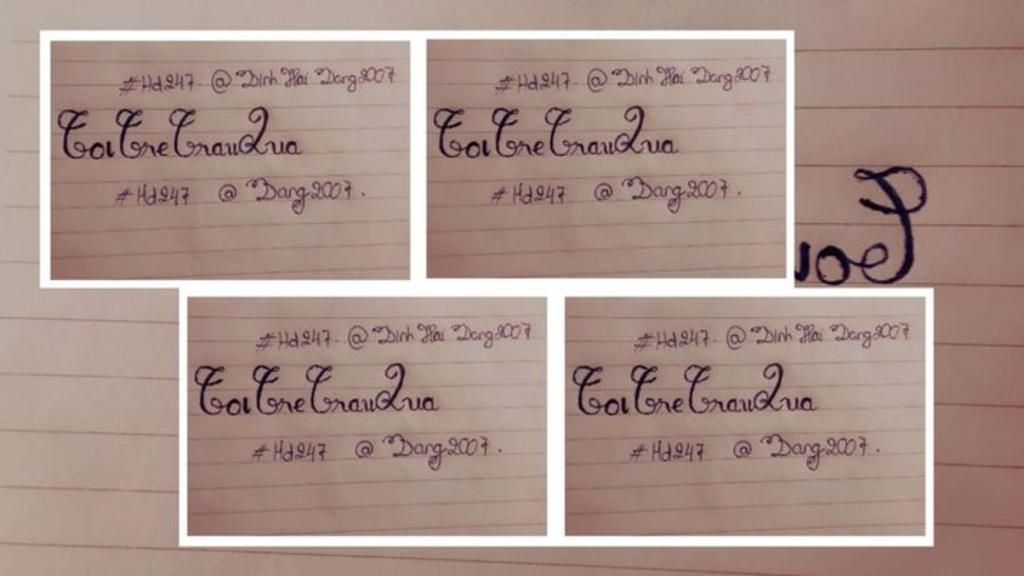 #Hd247. @ Dinh Hai Dang2007
#Hd247. @ Dinh Hai Dang2007
ToiTreTrauQua
ToiTreTrauQua
#Hd247 @ Dang2007.
#Hd247 @ Dang2007.
#Hd247. @ Dinh Hai Dang2007
#Hd247. @ Dinh Hai Dang2007
ToiTreTrauQua
ToiTreTrauQua
#Hd247 @ Dang2007.
#Hd247 @ Dang2007.